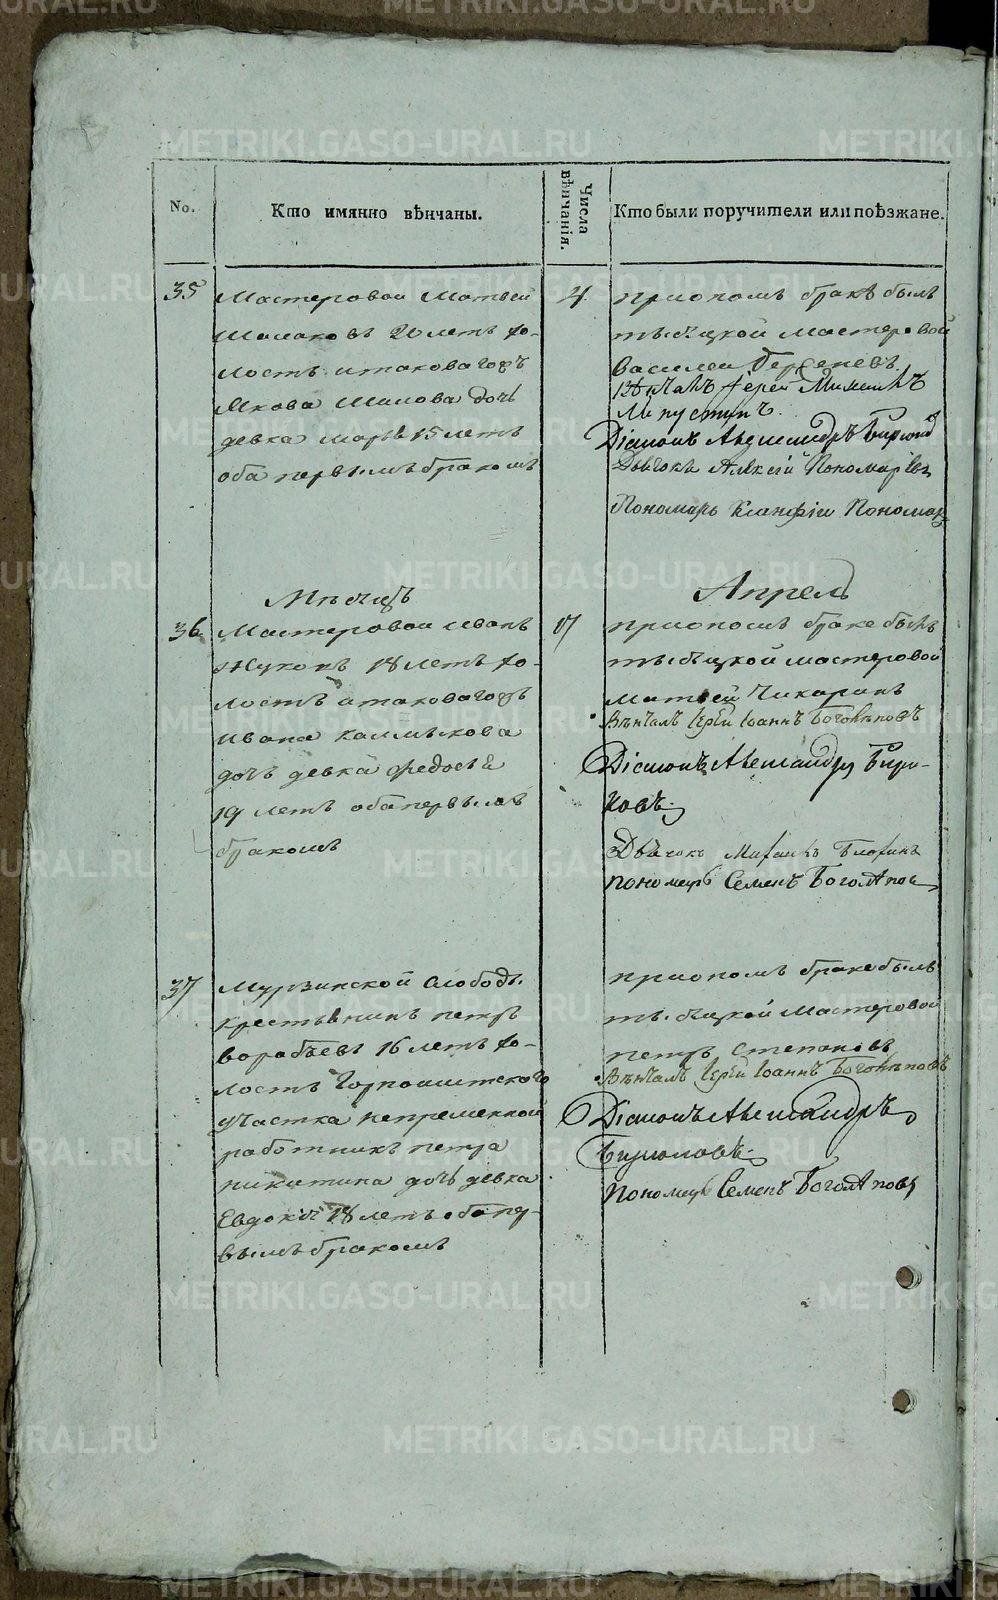 No.
Кто имянно вѣнчаны.
Числа вѣнчанія.
Кто были поручители или поѣзжане.
35
Мастеровои Матвеи
20 летъ хо-
лостъ итаковагожъ
Якова дочь
девка марья 15 летъ
оба первымъ бракомъ
4
приономъ браке былъ
мастеровой
Василеи
Вѣнчалъ Іерей
Діаконъ Александръ
Дьячокъ Алексій Пономаревъ
Пономарь Пономар
Мѣсяцъ
Апрель
36
Мастеровои иванъ
Жуковъ 18 летъ хо-
лостъ итаковагожъ
ивана калмыкова
дочь девка федосья
19 летъ оба первымъ
бракомъ
17
приономъ браке былъ
мастеровой
матвей Чикаринъ
Вѣнчалъ Іерей Іоаннъ Боголѣповъ
Діаконъ Александръ Бирю-
ковъ
Дьячокъ Михаилъ
пономарь Семенъ Боголѣпов
37
Мурзинской слободы
крестьянинъ петръ
воробьевъ 16 летъ хо-
лостъ Горнощитскаго
участка непременной
работникъ петра
никитина дочь девка
Евдокия 18 летъ оба пер-
вымъ бракомъ
приономъ браке былъ
Мастеровой
петръ степановъ
Вѣнчалъ Іерей Іоаннъ Боголѣповъ
Діаконъ Александръ
Бирюковъ
пономарь Семенъ Боголѣповъ
METRIKI.GASO-URAL.RU